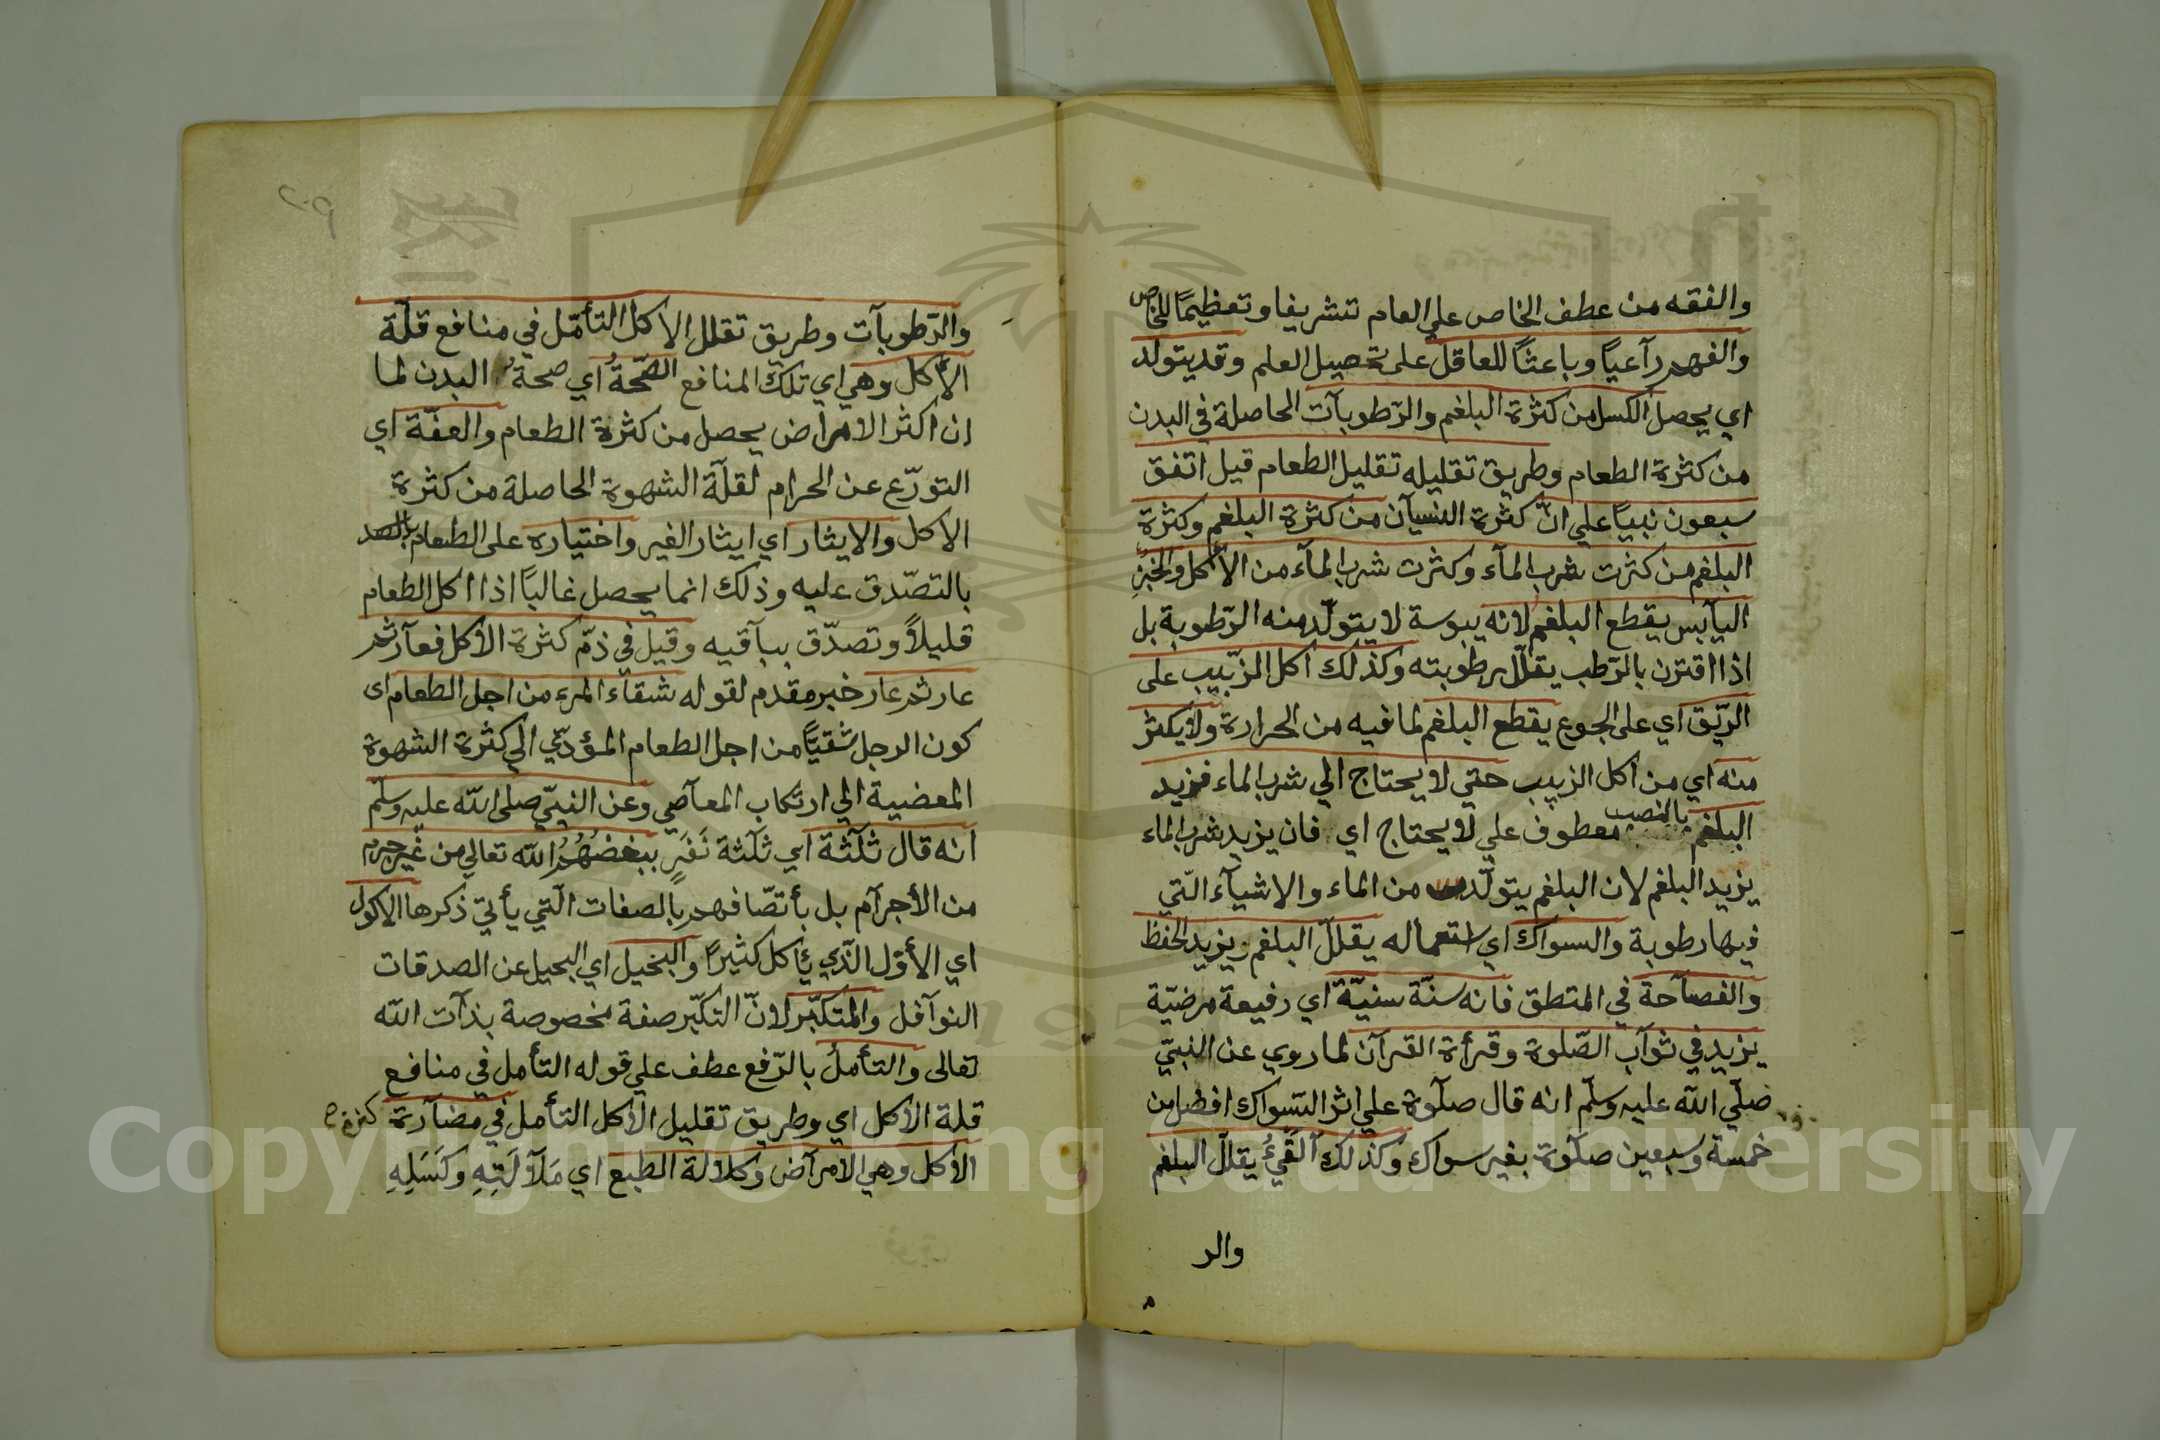 والفقه من عطف الخاص علي العام تشريفا وتعظيمًا للخاص
والفهم رآعياً وباعثاً للعاقل على تحصيل العلم وقد يتولد
اي يحصل الكسل من كثرة البلغم والرّطوبآت الحاصلة في البدن
من كثرة الطعام وطريق تقليله تقليل الطعام قيل اتفق
سبعون نبياً علي انّ كثرة النسيآن من كثرة البلغم وكثرة
البلغم من كثرت شرب المآء وكثرت شرب المآء من الأكل والخبزِ
اليآبس يقطع البلغم لانه يبوسة لا يتولّد منه الرّطوبة بل
اذا اقترن بالرّطب يقلّل رطوبته وكذلك اكل الزّبيب على
الرّيق اي على الجوع يقطع البلغم لما فيه من الحرارة ولا يكثر
منه اي من اكل الزبيب حتي لا يحتاج الي شرب الماء فيزيد
البلغم بالنصب معطوف علي لا يحتاج اي فان يزيد شرب الماء
يزيد البلغم لان البلغم يتولّد من الماء والاشيآء الّتي
فيها رطوبة والسواك اي استعماله يقلل البلغم ويزيد الحفظ
والفصآحة في المتطق فانه سنّة سنيّة اي رفيعة مرضيّة
يزيد في ثوآب الصّلوة وقرأة القرآن لما روي عن النبيّ
صلّي الله عليه وسلّم انه قال صلوة علي اثر السّواك افضل من
خمسة وسبعين صلوة بغير سواك وكذلك القَيْءُ يقلل البلغم
والر
والرّطوبآت وطريق تقلل الاكل التأمّل في منافع قلّة
الأكل وهي اي تلك المنافع الصّحّةُ اي صحة البدن لما
ان اكثر الامراض يحصل من كثرة الطعام والعفّة اي
التورّع عن الحرام لقلّة الشهوة الحاصلة من كثرة
الاكل والايثار اي ايثار الغير واختياره على الطعام
بالتصّدق عليه وذلك انما يحصل غالبًا اذا اكل الطعام
قليلاً وتصدّق ببآقيه وقيل في ذمّ كثرة الأكل فعآر ثم
عار ثم عار خبر مقدم لقوله شقآء المرء من اجل الطعام اى
كون الرجل شقيّاً من اجل الطعام المؤدّي الي كثرة الشهوة
المعضية الي ارتكاب المعآصي وعن النبيّ صلى الله عليه وسلّم
انه قال ثلثة اي ثلثة نَفَرٍ يبغضُهُمُ الله تعالي من غير جرم
من الأجرآم بل بأتصّافهم بالصفات الّتي يأتي ذكرها الاكول
اي الأوّل الذّي يأكل كثيراً والبخيل اي البخيل عن الصدقات
النوآفل والمتكبّر لانّ التكبّر صفة مخصوصة بذآت الله
تعالى والتأملُ بالرّفع عطف علي قوله التأمل في منافع
قلة الأكل اي وطريق تقليل الأكل التأمل في مضآرة كثرة
الأكل وهي الامرآض وكلالة الطبع اي مَلآلَتِهِ وكَسَلِهِ
Copyright © King Saud University